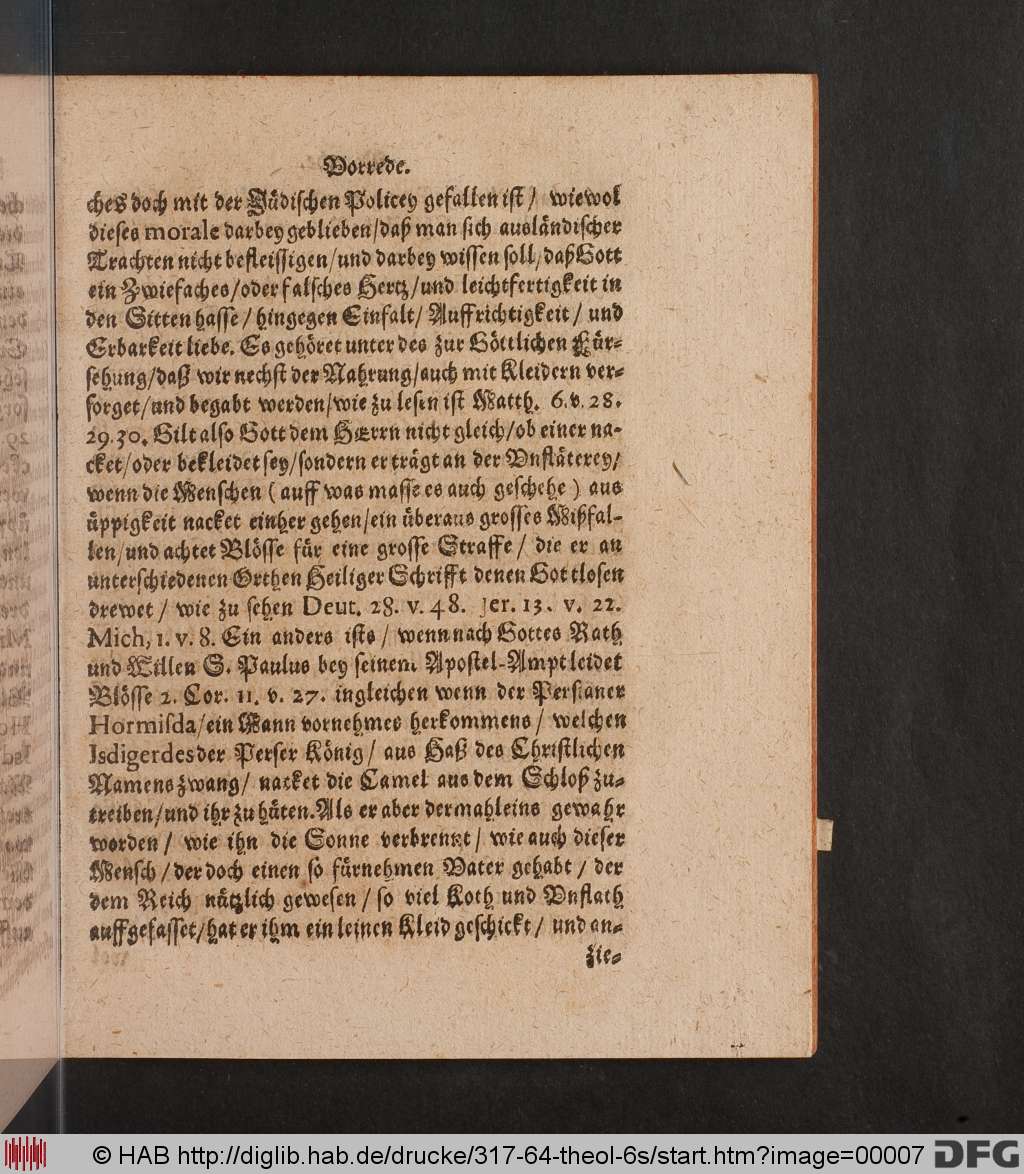 Vorrede.
ches doch mit der Jüdischen Policey gefallen ist/ wiewol
dieses morale darbey geblieben/daß man sich ausländischer
Trachten nicht befleissigen/und darbey wissen soll/daß Gott
ein Zwiefaches/oder falsches Hertz/und leichtfertigkeit in
den Sitten hasse/ hingegen Einfalt/ Auffrichtigkeit/ und
Erbarkeit liebe. Es gehöret unter des zur Göttlichen Für-
sehung/daß wir nechst der Nahrung/auch mit Kleidern ver-
sorget/und begabt werden/wie zu lesen ist Matth. 6. v. 28.
29.30. Gilt also Gott dem HErrn nicht gleich/ob einer na-
cket/oder bekleidet sey/sondern er trägt an der Vnfläterey/
wenn die Menschen (auff was masse es auch geschehe) aus
üppigkeit nacket einher gehen/ein überaus grosses Mißfal-
len/und achtet Blösse für eine grosse Straffe/ die er an
unterschiedenen Orthen Heiliger Schrifft denen Gottlosen
drewet/ wie zu sehen Deut. 28. v. 48. Jer. 13. v. 22.
Mich, 1. v. 8. Ein anders ists/ wenn nach Gottes Rath
und Willen S. Paulus bey seinem Apostel-Ampt leidet
Blösse 2. Cor. 11. v. 27. ingleichen wenn der Persianer
Hormisda/ein Mann vornehmes herkommens/ welchen
Isdigerdes der Perser König/ aus Haß des Christlichen
Namens zwang/ nacket die Camel aus dem Schloß zu-
treiben/und ihr zu hüten. Als er aber dermahleins gewahr
worden/ wie ihn die Sonne verbrennt/ wie auch dieser
Mensch/der doch einen so fürnehmen Vater gehabt/ der
dem Reich nützlich gewesen/ so viel Koth und Vnflath
auffgefasset/hat er ihm ein leinen Kleid geschickt/ und an-
zie-
© HAB http://diglib.hab.de/drucke/317-64-theol-6s/start.htm?image=00007
DFG